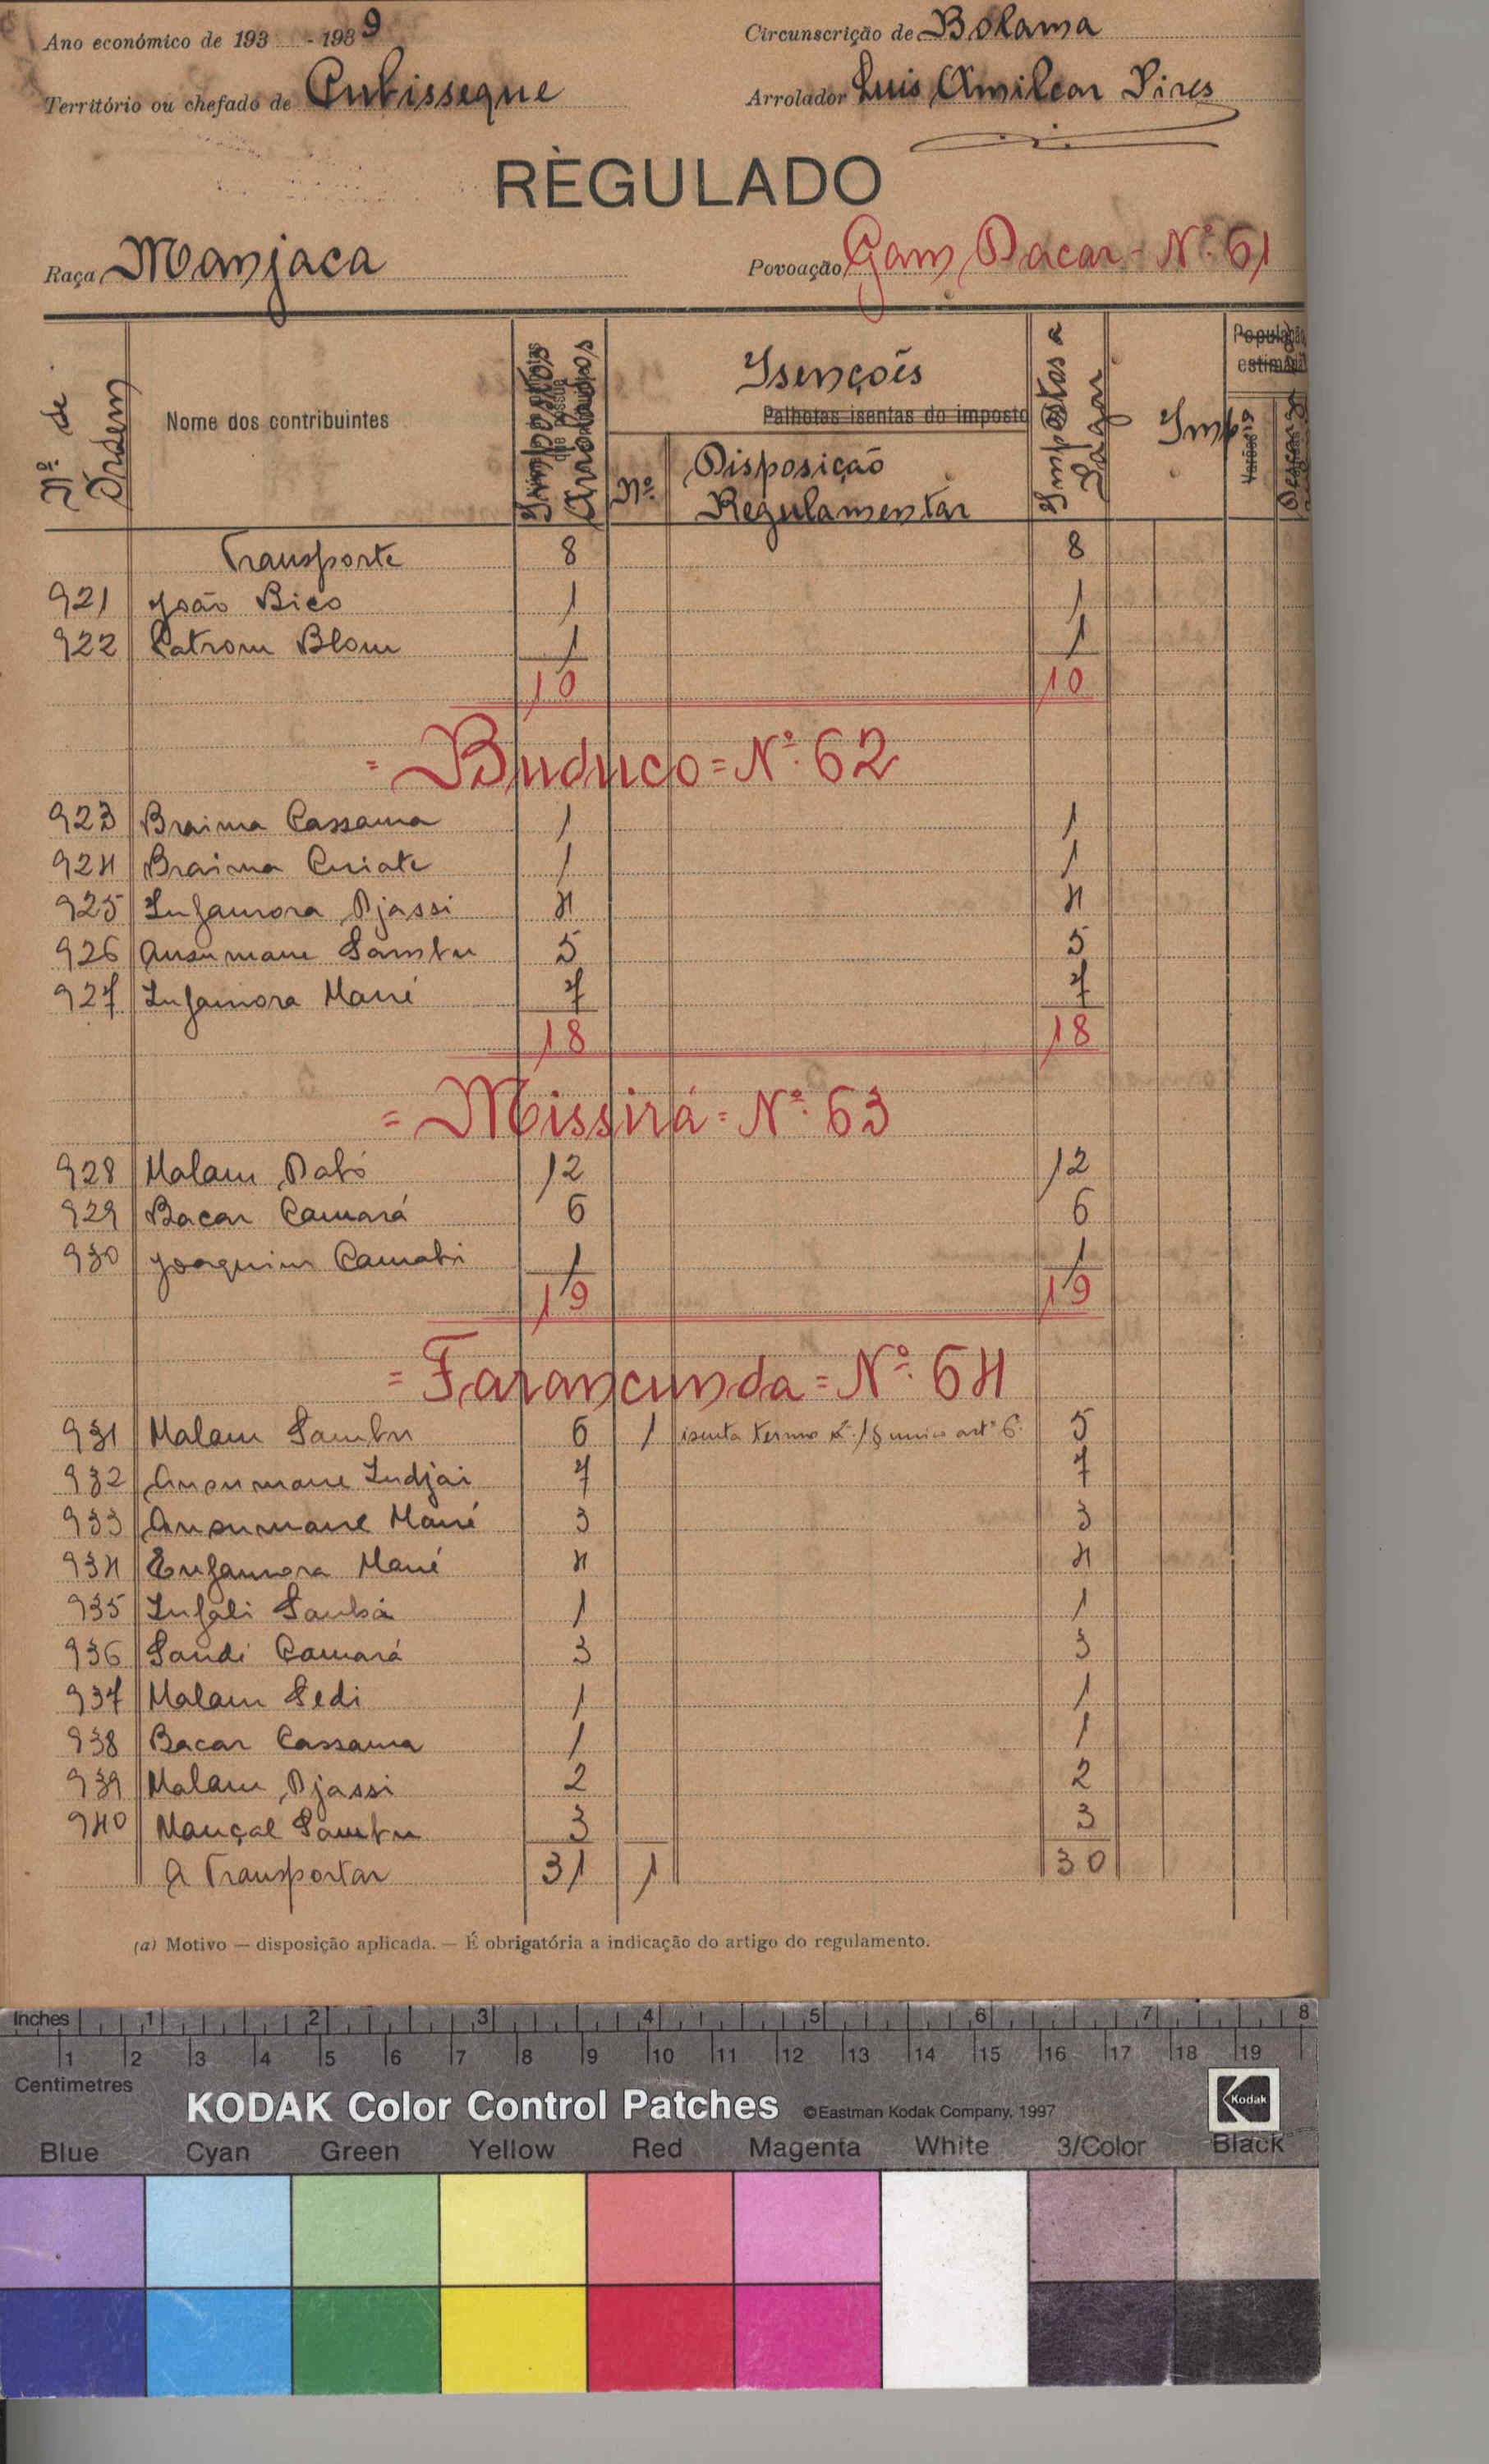 Ano económico de 193 - 1939
Circunscrição de Bolama
Território ou chefado de Cubisseque
Arrolador Luis Amilcar Pires
RÈGULADO
Raça Manjaca
Povoação Gam Dacar - Nº. 61
Nº. de Ordem
Nome dos contribuintes
Impostos Arrolados
Isençoĩs
Palhotas isentas do imposto
Nº.
Disposição
Regulamentar
Impostos a Pagar
Imp
População
estimada
Varões
Transporte 8 8
921 João Bico 1 1
922 Patrom Blom 1 1
10 10
= Buduco = Nº. 62
923 Braima Cassama 1 1
924 Braima Curiate 1 1
925 Infamora Djassi 4 4
926 Ansumane Sambu 5 5
927 Infamora Mané 7 7
18 18
= Missirá = Nº. 63
928 Malam Dabó 12 12
929 Bacar Camará 6 6
930 Joaquim Camabi 1 1
19 19
= Farancunda = Nº. 64
931 Malam Sambu 6 1 isenta termo § unico artº 6. 5
932 Ansumane Indjai 7 7
933 Ansumane Mané 3 3
934 Enfamora Mané 4 4
935 Infali Sambá 1 1
936 Sandi Camará 3 3
937 Malam Sedi 1 1
938 Bacar Cassama 1 1
939 Malam Djassi 2 2
940 Mançal Sambu 3 3
A Transportar 31 1 30
(a) Motivo — disposição aplicada. — É obrigatória a indicação do artigo do regulamento.
Inches 1 2 3 4 5 6 7 8
1 2 3 4 5 6 7 8 9 10 11 12 13 14 15 16 17 18 19
Centimetres
KODAK Color Control Patches ©Eastman Kodak Company, 1997 Kodak
Blue Cyan Green Yellow Red Magenta White 3/Color Black